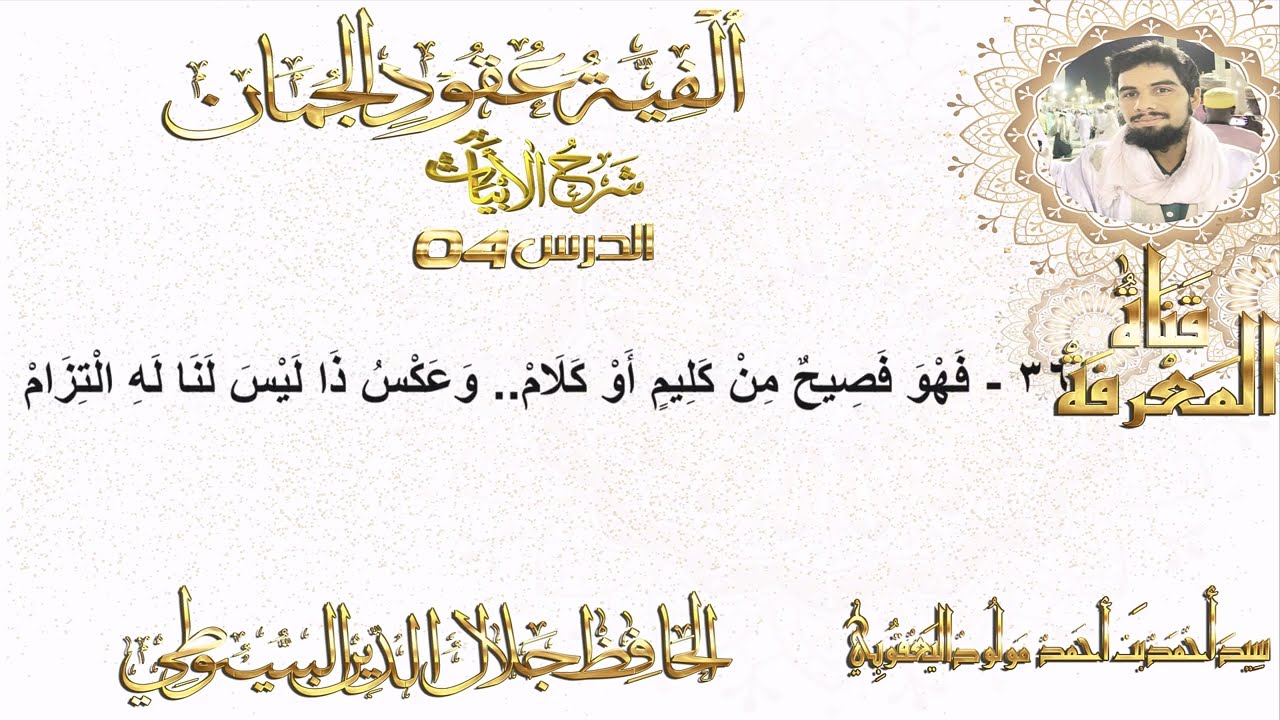 ألفية عقود الجمان
شرح الأبيات
الدرس 04
قناة
المعرفة
٣٦ - فَهْوَ فَصِيحٌ مِنْ كَلِيمٍ أَوْ كَلَامْ.. وَعَكْسُ ذَا لَيْسَ لَنَا لَهِ الْتِزَامْ
الحافظ جلال الدين السيوطي
سيد أحمد بن أحمد مولود اليعقوبي